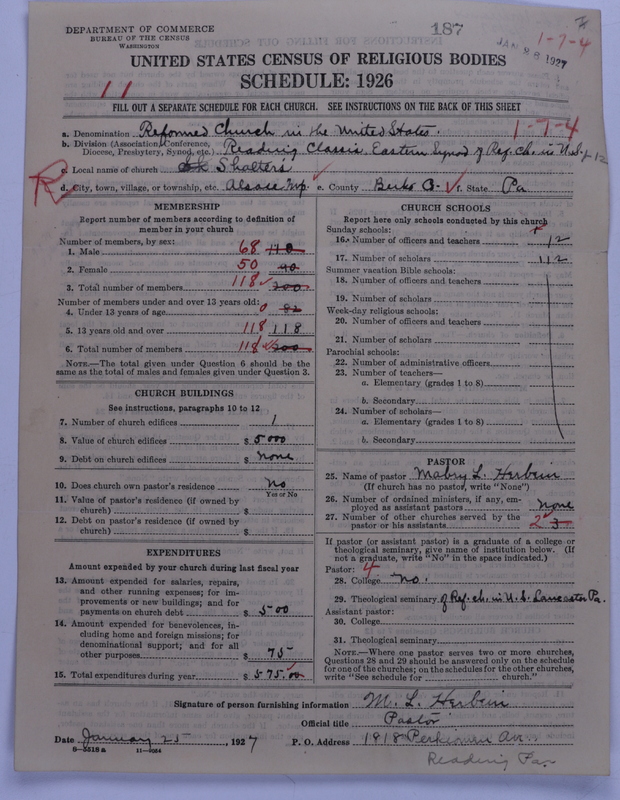 187
DEPARTMENT OF COMMERCE
BUREAU OF THE CENSUS
WASHINGTON
1-7-4
JAN 28 1927
UNITED STATES CENSUS OF RELIGIOUS BODIES
SCHEDULE: 1926
11
FILL OUT A SEPARATE SCHEDULE FOR EACH CHURCH. SEE INSTRUCTIONS ON THE BACK OF THIS SHEET
a. Denomination Reformed Church in the United States. 1-7-4
b. Division (Association, Conference,
Diocese, Presbytery, Synod, etc.) Reading Classis. Eastern Synod of Ref. Ch. in U.S. 12
c. Local name of church Shalters
R
d. City, town, village, or township, etc. Alsace Twp. e. County Berks Co. f. State Pa.
MEMBERSHIP
Report number of members according to definition of
member in your church
Number of members, by sex:
1. Male 68 110
2. Female 50 90
3. Total number of members 118 200
Number of members under and over 13 years old:
4. Under 13 years of age 0 82
5. 13 years old and over 118 118
6. Total number of members 118 200
NOTE.—The total given under Question 6 should be the
same as the total of males and females given under Question 3.
CHURCH BUILDINGS
See instructions, paragraphs 10 to 12
7. Number of church edifices 1
8. Value of church edifices $ 5000
9. Debt on church edifices $ None
10. Does church own pastor's residence No
Yes or No
11. Value of pastor's residence (if owned by
church) $
12. Debt on pastor's residence (if owned by
church) $
EXPENDITURES
Amount expended by your church during last fiscal year
13. Amount expended for salaries, repairs,
and other running expenses; for im-
provements or new buildings; and for
payments on church debt $ 500
14. Amount expended for benevolences, in-
cluding home and foreign missions; for
denominational support; and for all
other purposes $ 75
15. Total expenditures during year $ 575.00
CHURCH SCHOOLS
Report here only schools conducted by this church
Sunday schools:
16. Number of officers and teachers 12
17. Number of scholars 112
Summer vacation Bible schools:
18. Number of officers and teachers
19. Number of scholars
Week-day religious schools:
20. Number of officers and teachers
21. Number of scholars
Parochial schools:
22. Number of administrative officers
23. Number of teachers—
a. Elementary (grades 1 to 8)
b. Secondary
24. Number of scholars—
a. Elementary (grades 1 to 8)
b. Secondary
PASTOR
25. Name of pastor L. Herbein
(If church has no pastor, write "None")
26. Number of ordained ministers, if any, em-
ployed as assistant pastors None
27. Number of other churches served by the
pastor or his assistants 2 3
If pastor (or assistant pastor) is a graduate of a college or
theological seminary, give name of institution below. (If
not a graduate, write "No" in the space indicated.)
Pastor: 4
28. College No.
29. Theological seminary of Ref. ch. in U.S. Lancaster Pa.
Assistant pastor:
30. College
31. Theological seminary
NOTE.—Where one pastor serves two or more churches,
Questions 28 and 29 should be answered only on the schedule
for one of the churches; on the schedules for the other churches,
write "See schedule for church."
Signature of person furnishing information M. L. Herbein
Official title Pastor
Date January 25, 1927 P. O. Address 1918 Perkiomen Ave.
8-5518a 11-9054 Reading Pa.